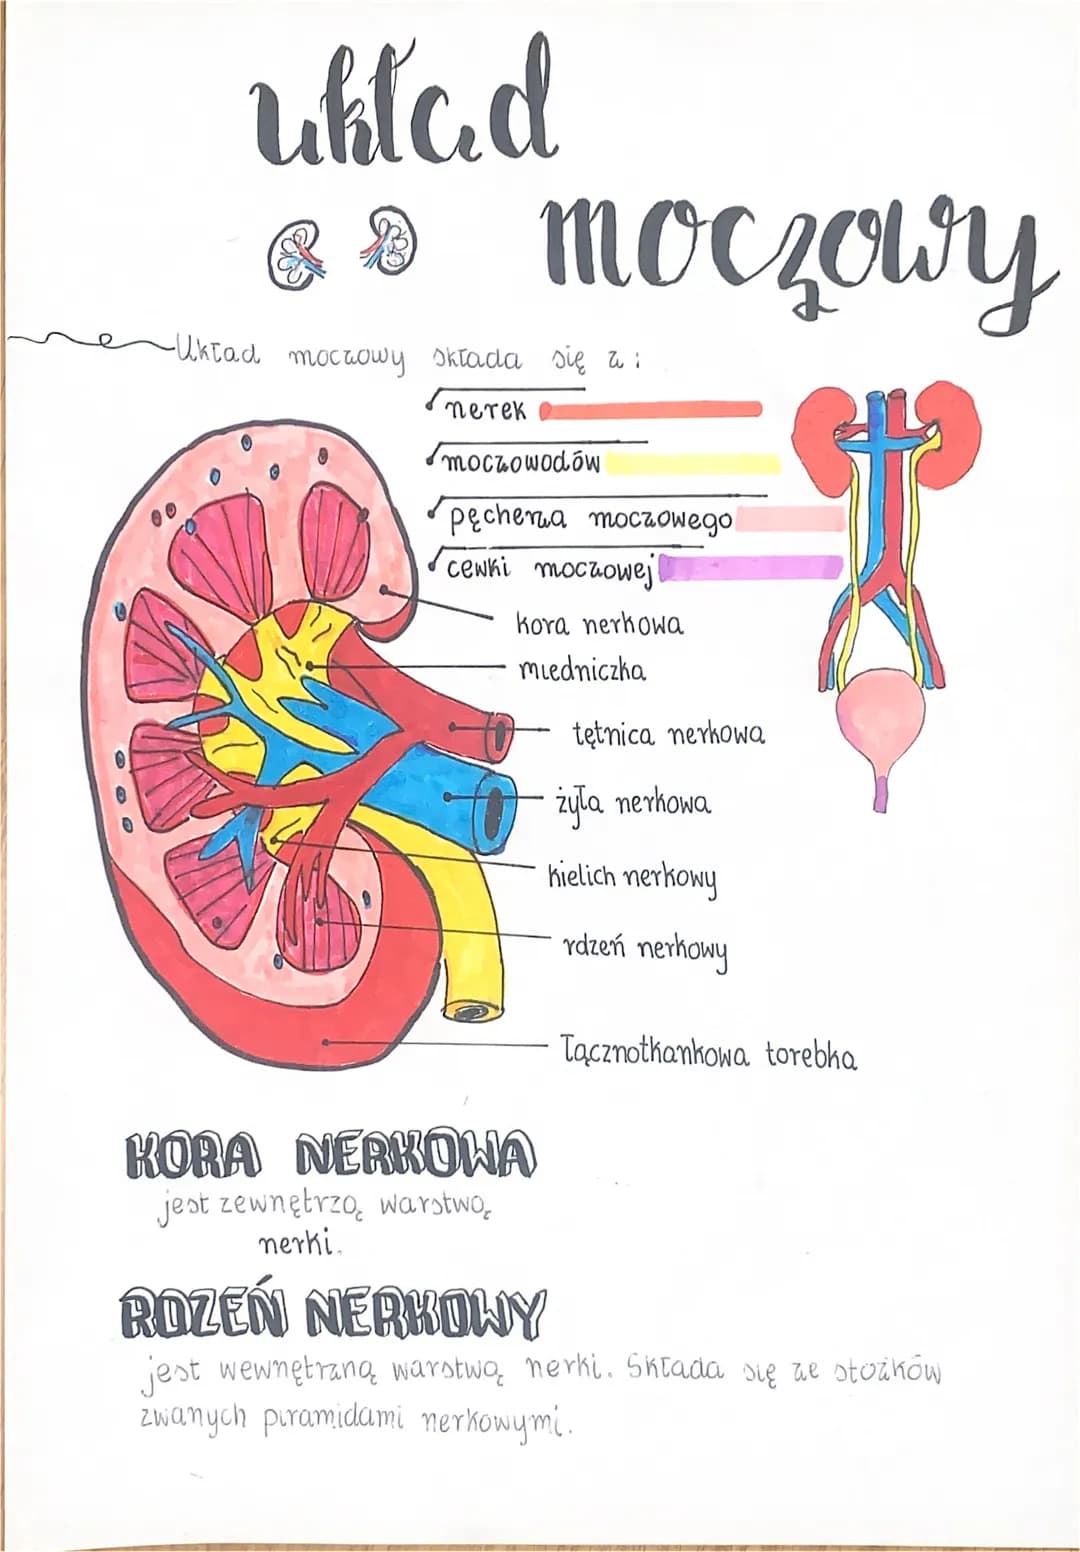 układ
moczowy
Układ moczowy składa się z:
nerek
moczowodów
pęcherza moczowego
cewki moczowej
kora nerkowa
miedniczka
tętnica nerkowa
żyła nerkowa
kielich nerkowy
rdzeń nerkowy
łącznotkankowa torebka
KORA NERKOWA
jest zewnętrzą warstwą
nerki.
RDZEŃ NERKOWY
jest wewnętrzną warstwą nerki. Składa się ze stożków
zwanych piramidami nerkowymi.